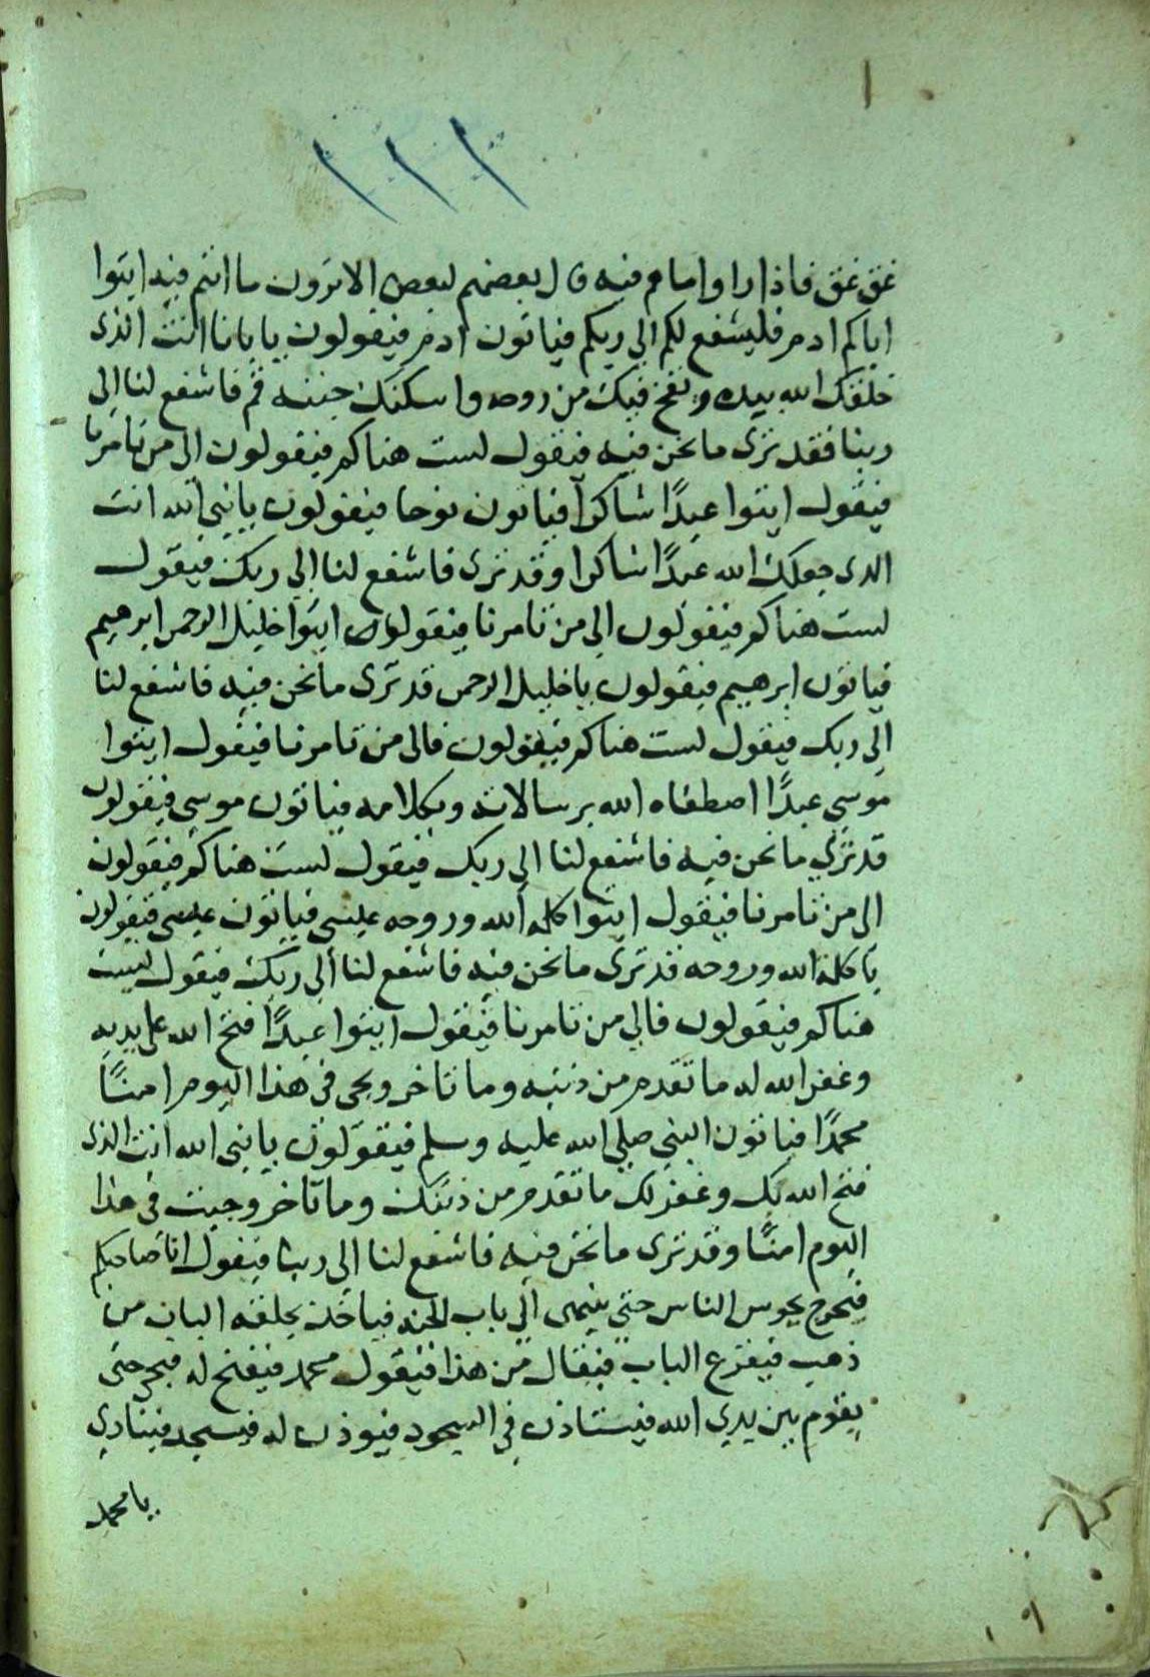 ١
١١١
غق غق فاذا راوا ما هم فيه قال بعضهم لبعض الا ترون ما انتم فيه ايتوا
اباكم ادم فليشفع لكم الى ربكم فياتون ادم فيقولون يا بانا انت الذى
خلقك الله بيده ونفخ فيك من روحه واسكنك جنته قم فاشفع لنا الى
ربنا فقد ترى ما نحن فيه فيقول لست هناكم فيقولون الى من تامرنا
فيقول ايتوا عبدًا شاكرًا فياتون نوحا فيقولون يا نبى الله انت
الذى جعلك الله عبدًا شاكرا وقد ترى فاشفع لنا الى ربك فيقول
لست هناكم فيقولون الى من تامرنا فيقولون ايتوا خليل الرحمن ابرهيم
فياتون ابرهيم فيقولون يا خليل الرحمن قد ترى ما نحن فيه فاشفع لنا
الى ربك فيقول لست هناكم فيقولون فالى من تامرنا فيقول ايتوا
موسى عبدًا اصطفاه الله برسالاته وبكلامه فياتون موسى فيقولون
قد ترى ما نحن فيه فاشفع لنا الى ربك فيقول لست هناكم فيقولون
الى من تامرنا فيقول ايتوا كلمة الله وروحه عيسى فياتون عيسى فيقولون
يا كلمة الله وروحه قد ترى ما نحن فيه فاشفع لنا الى ربك فيقول لست
هناكم فيقولون فالى من تامرنا فيقول ايتوا عبدًا فتح الله على يديه
وغفر الله له ما تقدم من ذنبه وما تاخر ويجى فى هذا اليوم امنًا
محمدًا فياتون النبى صلى الله عليه وسلم فيقولون يا نبى الله انت الذى
فتح الله بك وغفر لك ما تقدم من ذنبك وما تاخر وجيت فى هذا
اليوم امنًا وقد ترى ما نحن فيه فاشفع لنا الى ربنا فيقول انا صاحبكم
فيخرج يحوس الناس حتى ينتهى الى باب الجنه فياخذ بحلقه الباب من
ذهب فيقرع الباب فيقال من هذا فيقول محمد فيفتح له فيجى حتى
يقوم بين يدى الله فيستاذن فى السجود فيوذن له فيسجد فينادى
يا محمد